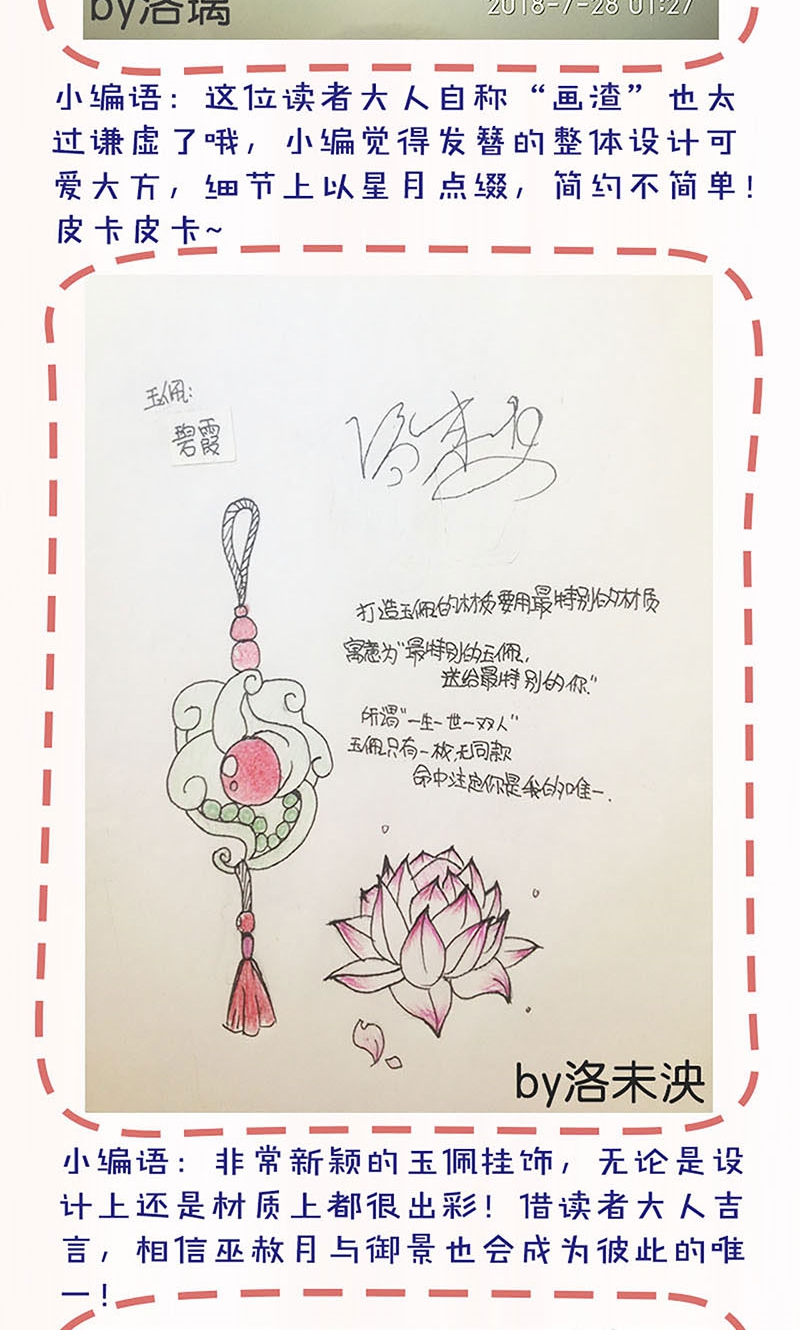 by洛璃
2018-7-28 01:27
小编语：这位读者大人自称“画渣”也太
过谦虚了哦，小编觉得发簪的整体设计可
爱大方，细节上以星月点缀，简约不简单！
皮卡皮卡~
玉佩：
碧霞
洛未央
打造玉佩的材质要用最特别的材质
寓意为“最特别的玉佩，
送给最特别的你”
所谓“一生一世一双人”
玉佩只有一枚，无同款
命中注定你是我的唯一.
by洛未泱
小编语：非常新颖的玉佩挂饰，无论是设
计上还是材质上都很出彩！借读者大人吉
言，相信巫赦月与御景也会成为彼此的唯
一！